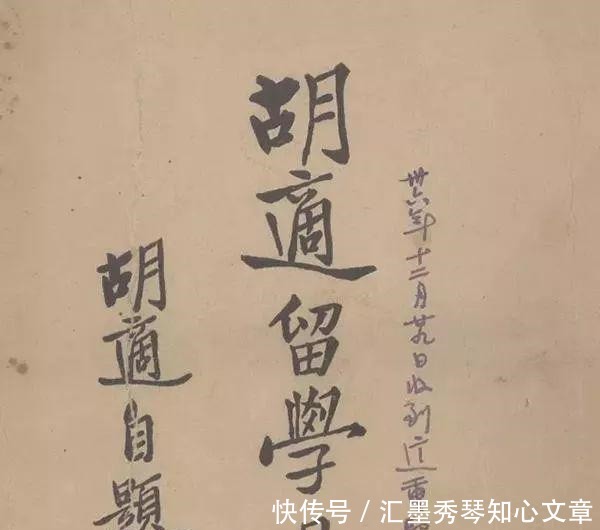 卅六年十二月廿九日收到這重
胡適留學
胡適自題
快传号 / 汇墨秀琴知心文章